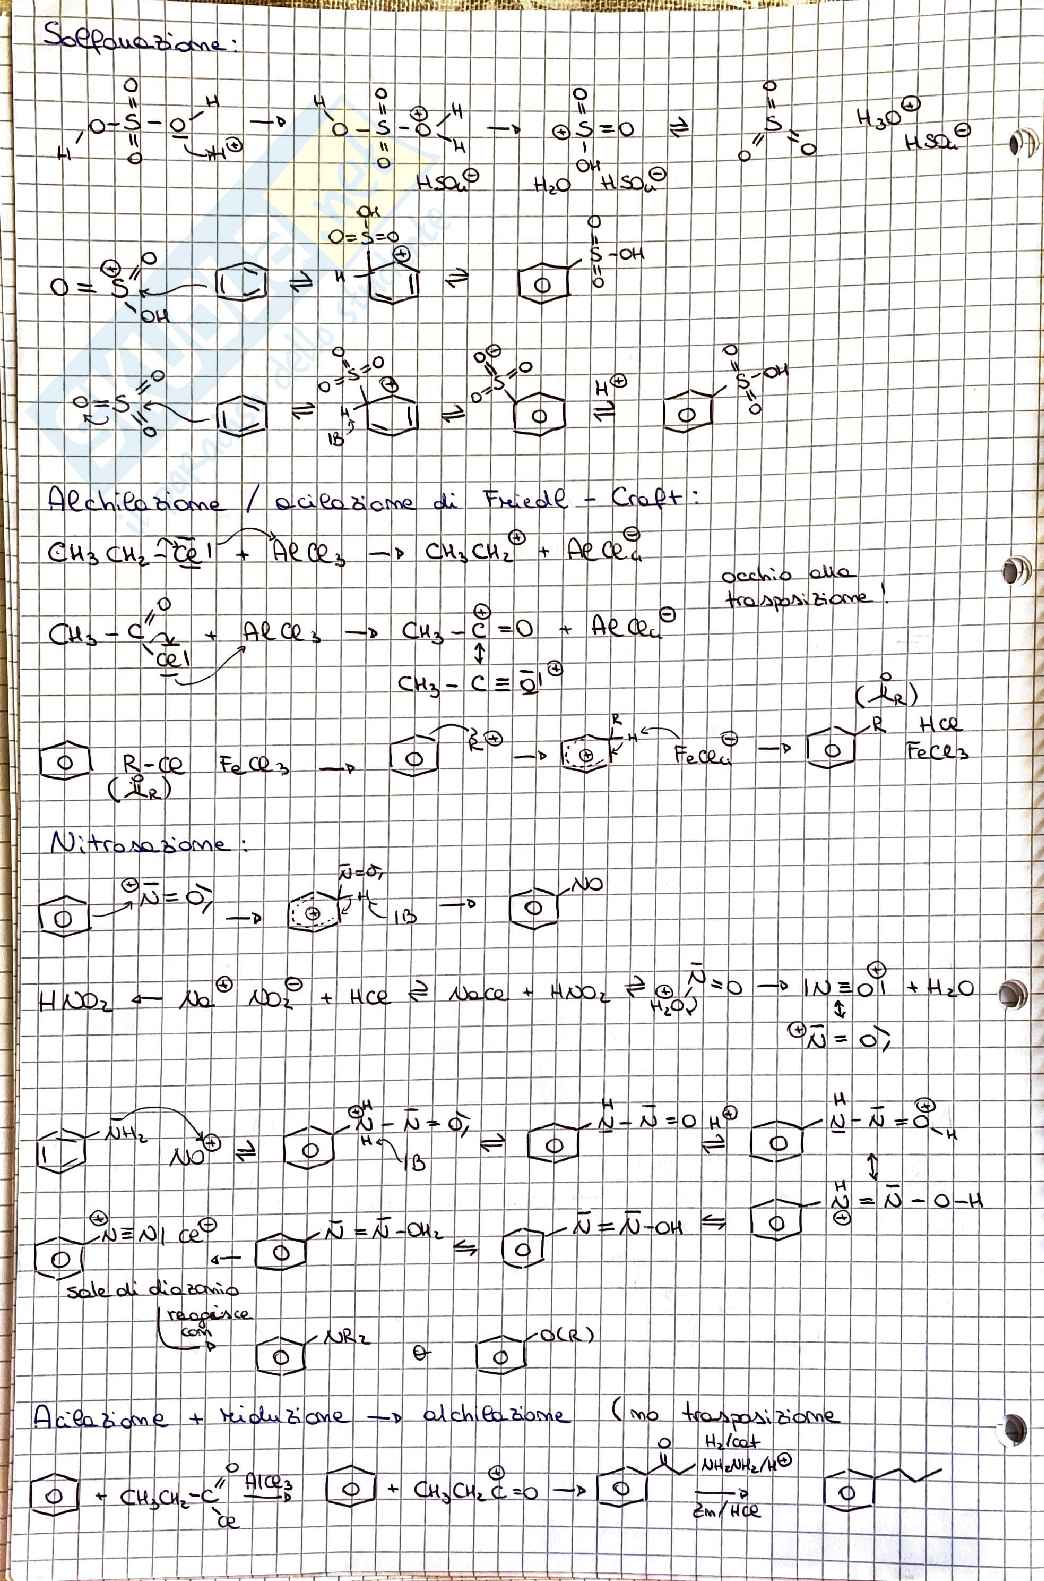 Solfonazione:
O=S(=O) H O-S-O H H⊕ → H O-S-O⊕ H H HSO4⊖ → ⊕S=O OH H2O HSO4⊖ ⇌ O S O O H3O⊕ HSO4⊖
O=S⊕ O OH ⇌ OH O=S=O H ⊕ ⇌ O S-OH O
O=S O O ⇌ O O=S=O H ⊕ IB ⇌ O⊖ O=S=O H⊕ ⇌ O S-OH O
Alchilazione / acilazione di Friedl - Craft:
CH3CH2-Cl| + AlCl3 → CH3CH2⊕ + AlCl4⊖
occhio alla
trasposizione!
CH3-C O Cl| + AlCl3 → CH3-C⊕=O + AlCl4⊖
↕
CH3-C≡O|⊕
R-Cl FeCl3 → R⊕ → R H ⊕ FeCl4⊖ → R HCl FeCl3
(O R) (O R)
Nitrosazione:
⊕N=O → N=O H ⊕ IB → NO
HNO2 ← Na⊕ NO2⊖ + HCl ⇌ NaCl + HNO2 ⇌ H2O⊕ N=O → |N≡O|⊕ + H2O
↕
⊕N=O
NH2 NO⊕ ⇌ H ⊕N-N=O H IB ⇌ H N-N=O H⊕ ⇌ H N-N=O⊕ H
↕
⊕N≡N| Cl⊕ ← N=N-OH2 ⇋ N=N-OH ⇋ H N⊕=N-O-H
sale di diazonio
reagisce
con
NR2 o O(R)
Acilazione + riduzione → alchilazione (no trasposizione
+ CH3CH2-C O Cl AlCl3 → + CH3CH2C⊕=O → O H2/cat NH2NH2/H⊕ Zn/HCl →